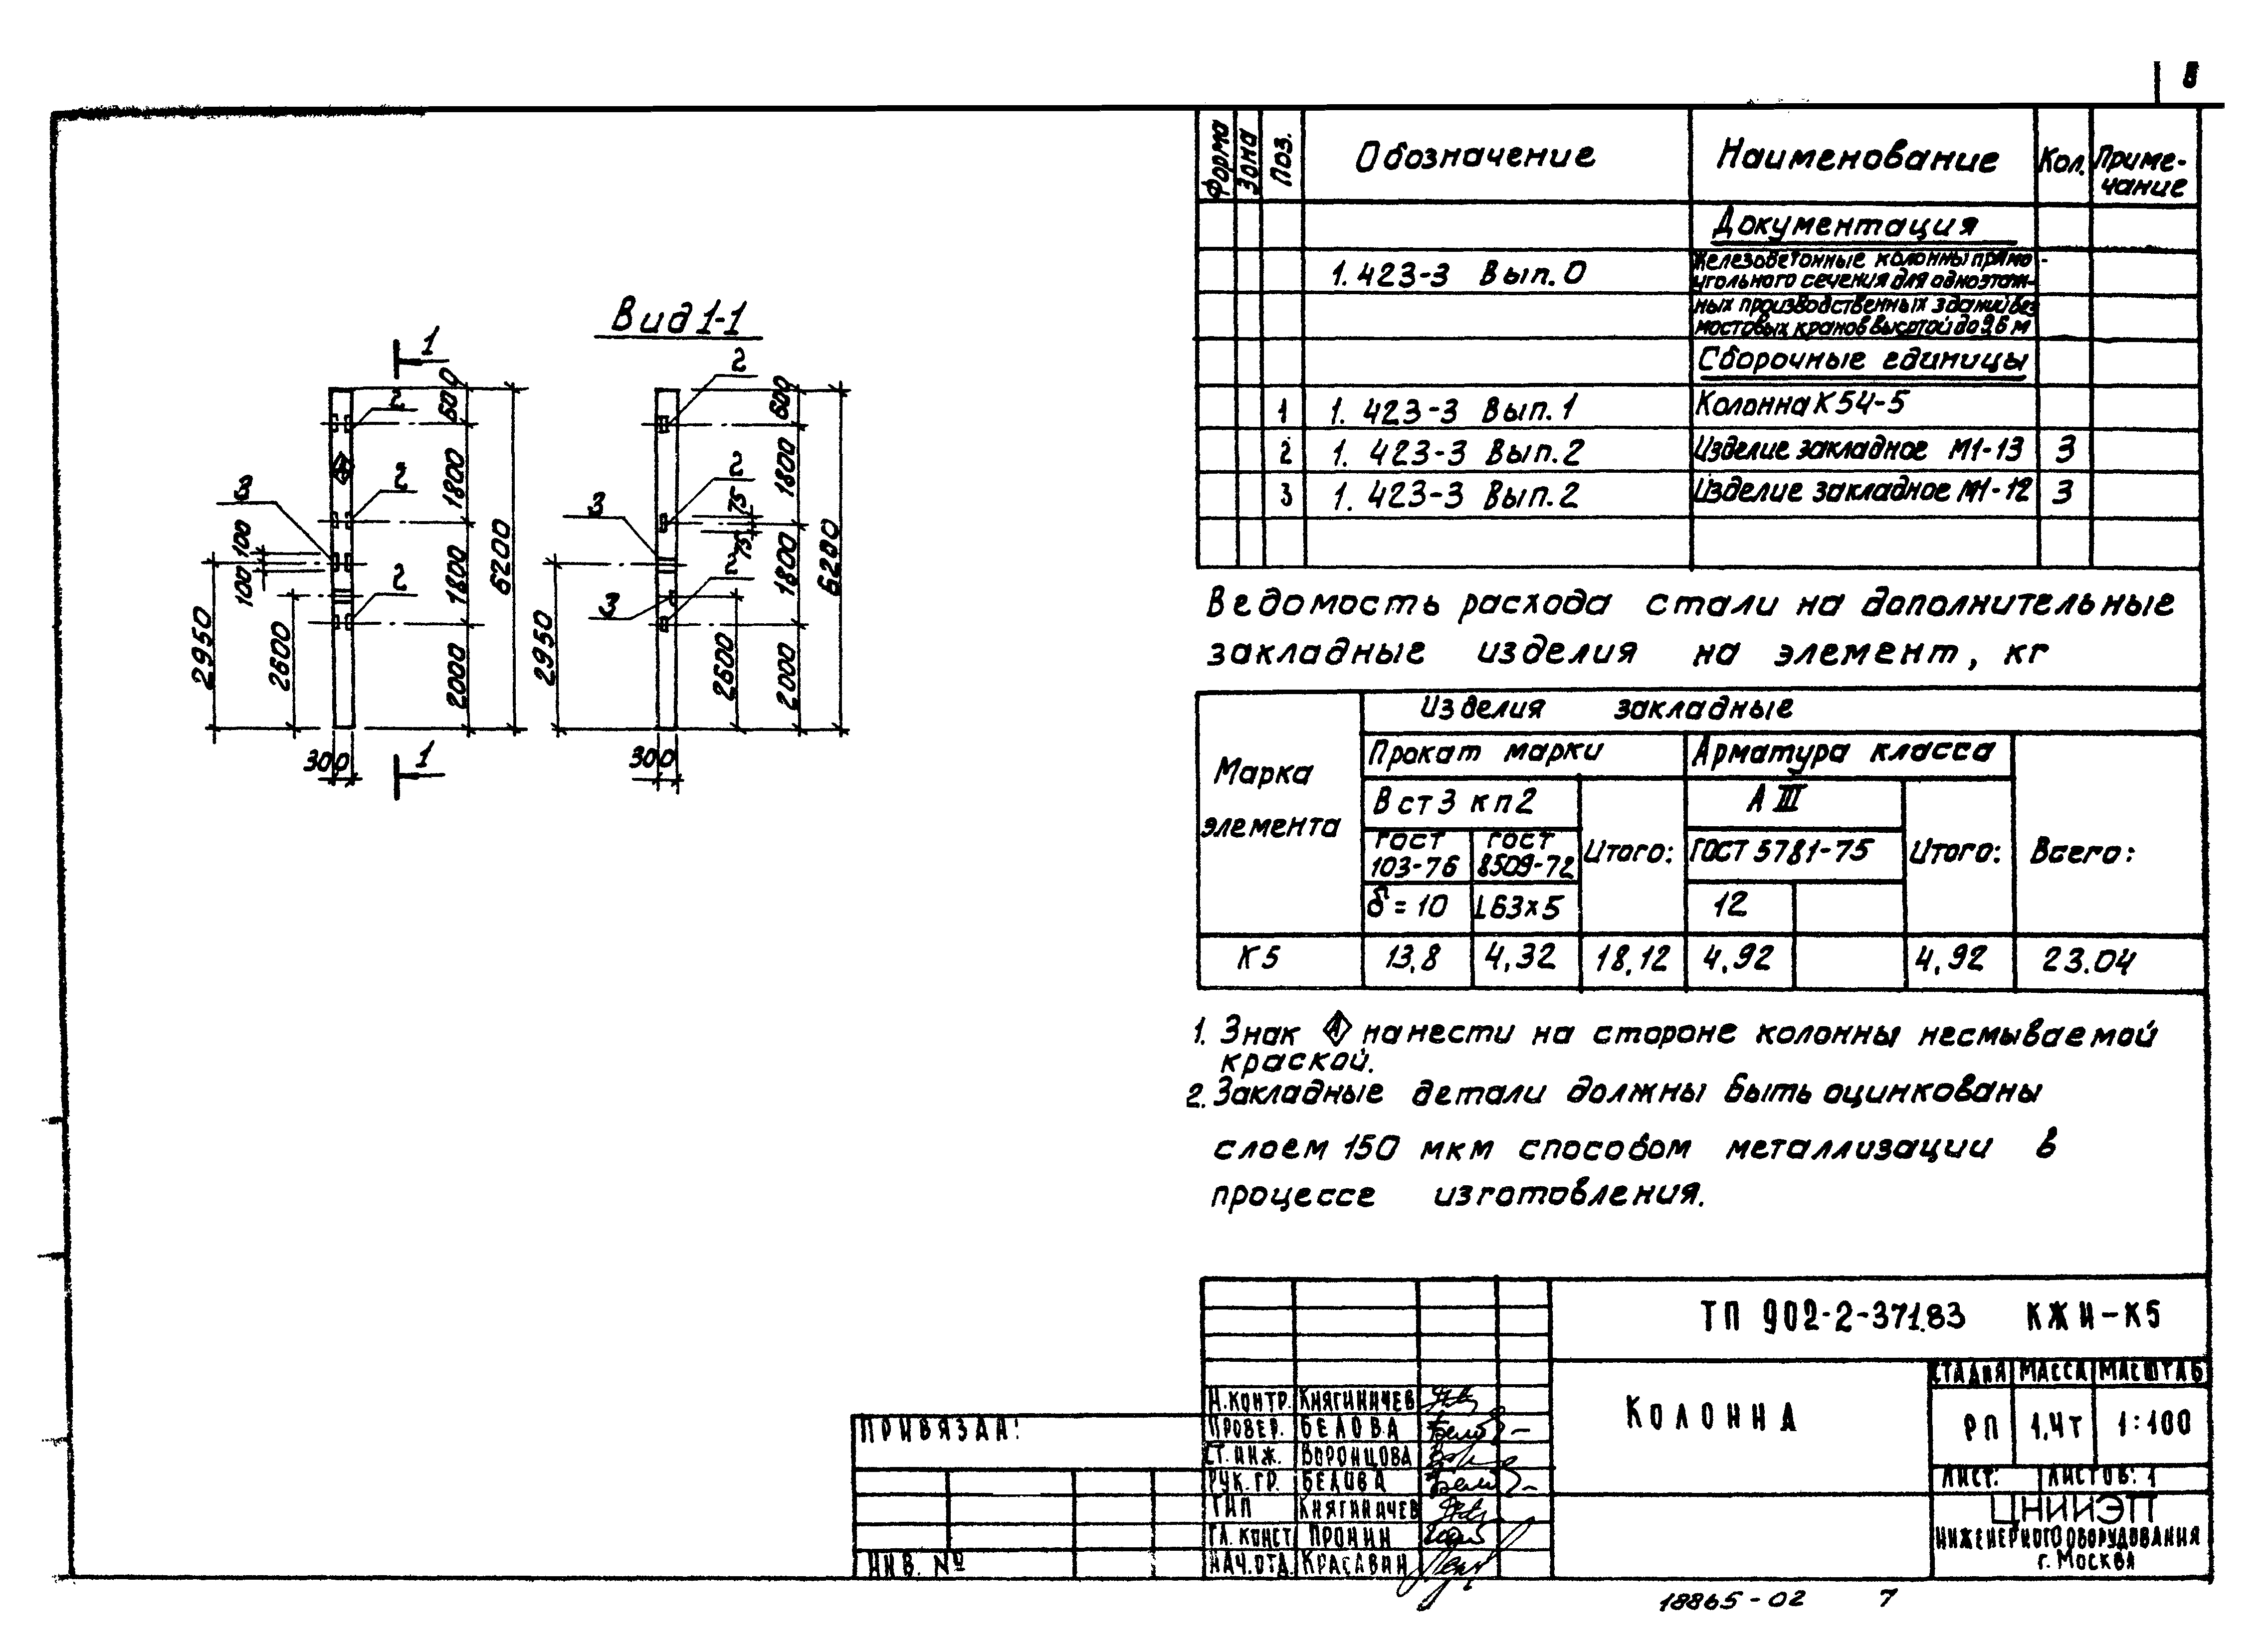 Форма Зона Поз. Обозначение Наименование Кол. Приме-
чание
Документация
1.423-3 Вып.0 Железобетонные колонны прямо-
угольного сечения для одноэтаж-
ных производственных зданий без
мостовых кранов высотой до 9,6 м
Сборочные единицы
1 1.423-3 Вып.1 Колонна К54-5
2 1.423-3 Вып.2 Изделие закладное М1-13 3
3 1.423-3 Вып.2 Изделие закладное М1-12 3
Вид 1-1
1
2
600
1800
2
3
100
100
1800
6200
2
2950
2600
2000
300
1
2
600
1800
2
75
75
3
1800
6200
2
3
2950
2600
2000
300
Ведомость расхода стали на дополнительные
закладные изделия на элемент, кг
Марка
элемента
Изделия закладные
Прокат марки
Арматура класса
Вст3 кп2
А III
ГОСТ
103-76
ГОСТ
8509-72
Итого:
ГОСТ 5781-75
Итого:
Всего:
δ=10 L63×5 12
К5 13,8 4,32 18,12 4,92 4,92 23.04
1. Знак А нанести на стороне колонны несмываемой
краской.
2. Закладные детали должны быть оцинкованы
слоем 150 мкм способом металлизации в
процессе изготовления.
ТП 902-2-371.83 КЖИ-К5
Колонна
Стадия Масса Масштаб
РП 1,4т 1:100
Лист: Листов: 1
ЦНИИЭП
инженерного оборудования
г. Москва
Н.контр. Княгиничев
Провер. Белова
Ст.инж. Воронцова
Рук.гр. Белова
ГИП Княгиничев
Гл.конст Пронин
Нач.отд. Красавин
Привязан:
Инв. №
18865-02 7